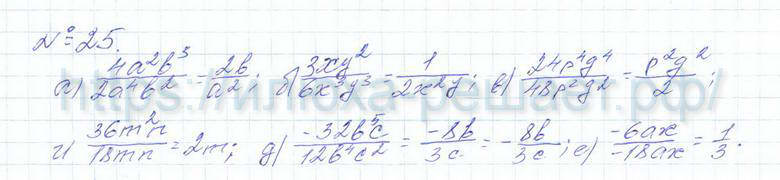 № 25.
а) 4a²b³/2a⁴b² = 2b/a²; б) 3xy²/6x³y³ = 1/2x²y; в) 24p⁴q⁴/48p²q² = p²q²/2;
г) 36m²n/18mn = 2m; д) -32b⁵c/12b⁴c² = -8b/3c = -8b/3c; е) -6ax/-18ax = 1/3.
https://илюха-решает.рф/